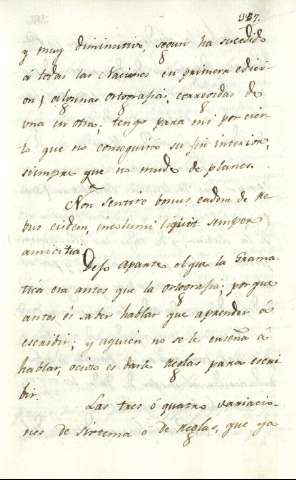 327.
y muy diminutiva, segun ha sucedido
á todas las Naciones en primera edicion
on; algunas ortografias, corregidas de
una en otra, tengo para mi por cier
to que no conseguira su fin interior,
siempre que no mude de planes.
Non sentire bonus eadem de re
bus eisdem, incolumi liquit semper
amicitia.
Dejo aparte el que la Grama
tica era antes que la ortografia; por que
antes es saber hablar que aprender á
escribir; y aquien no se le enseña á
hablar, ocioso es darle Reglas para escri
bir.
Las tres ó quatro variacio
nes de sistema ó de Reglas, que ya